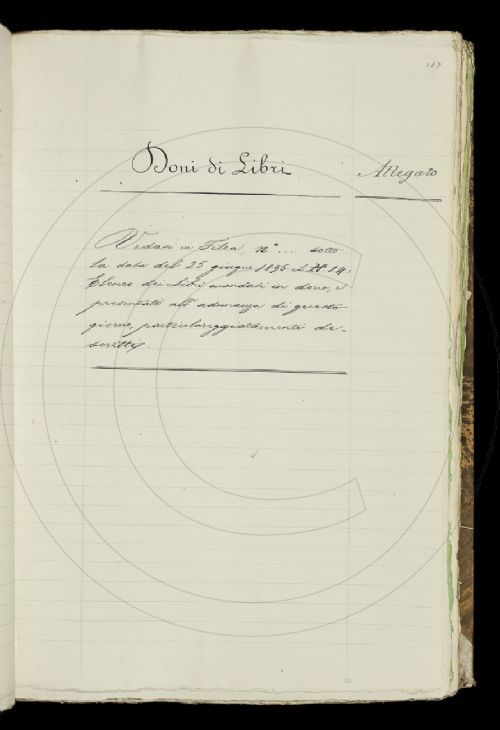 187
Doni di Libri
Allegato
Vedasi in Filza, n° .... sotto
la data del 25 giugno 1895 il N° 14:
Elenco dei Libri mandati in dono, e
presentati all'adunanza di questo
giorno, particolareggiatamente de-
scritti.